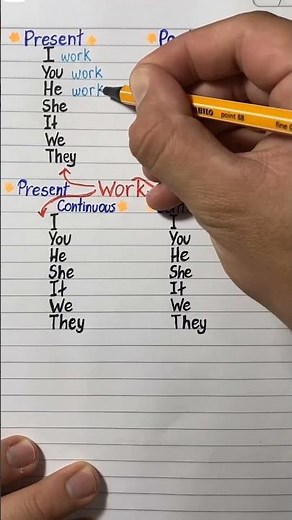 Present
I work
You work
He work
She
It
We
They
Present Work
Continuous
I
You
He
She
It
We
They
I
You
He
She
It
We
They
point 88
fine